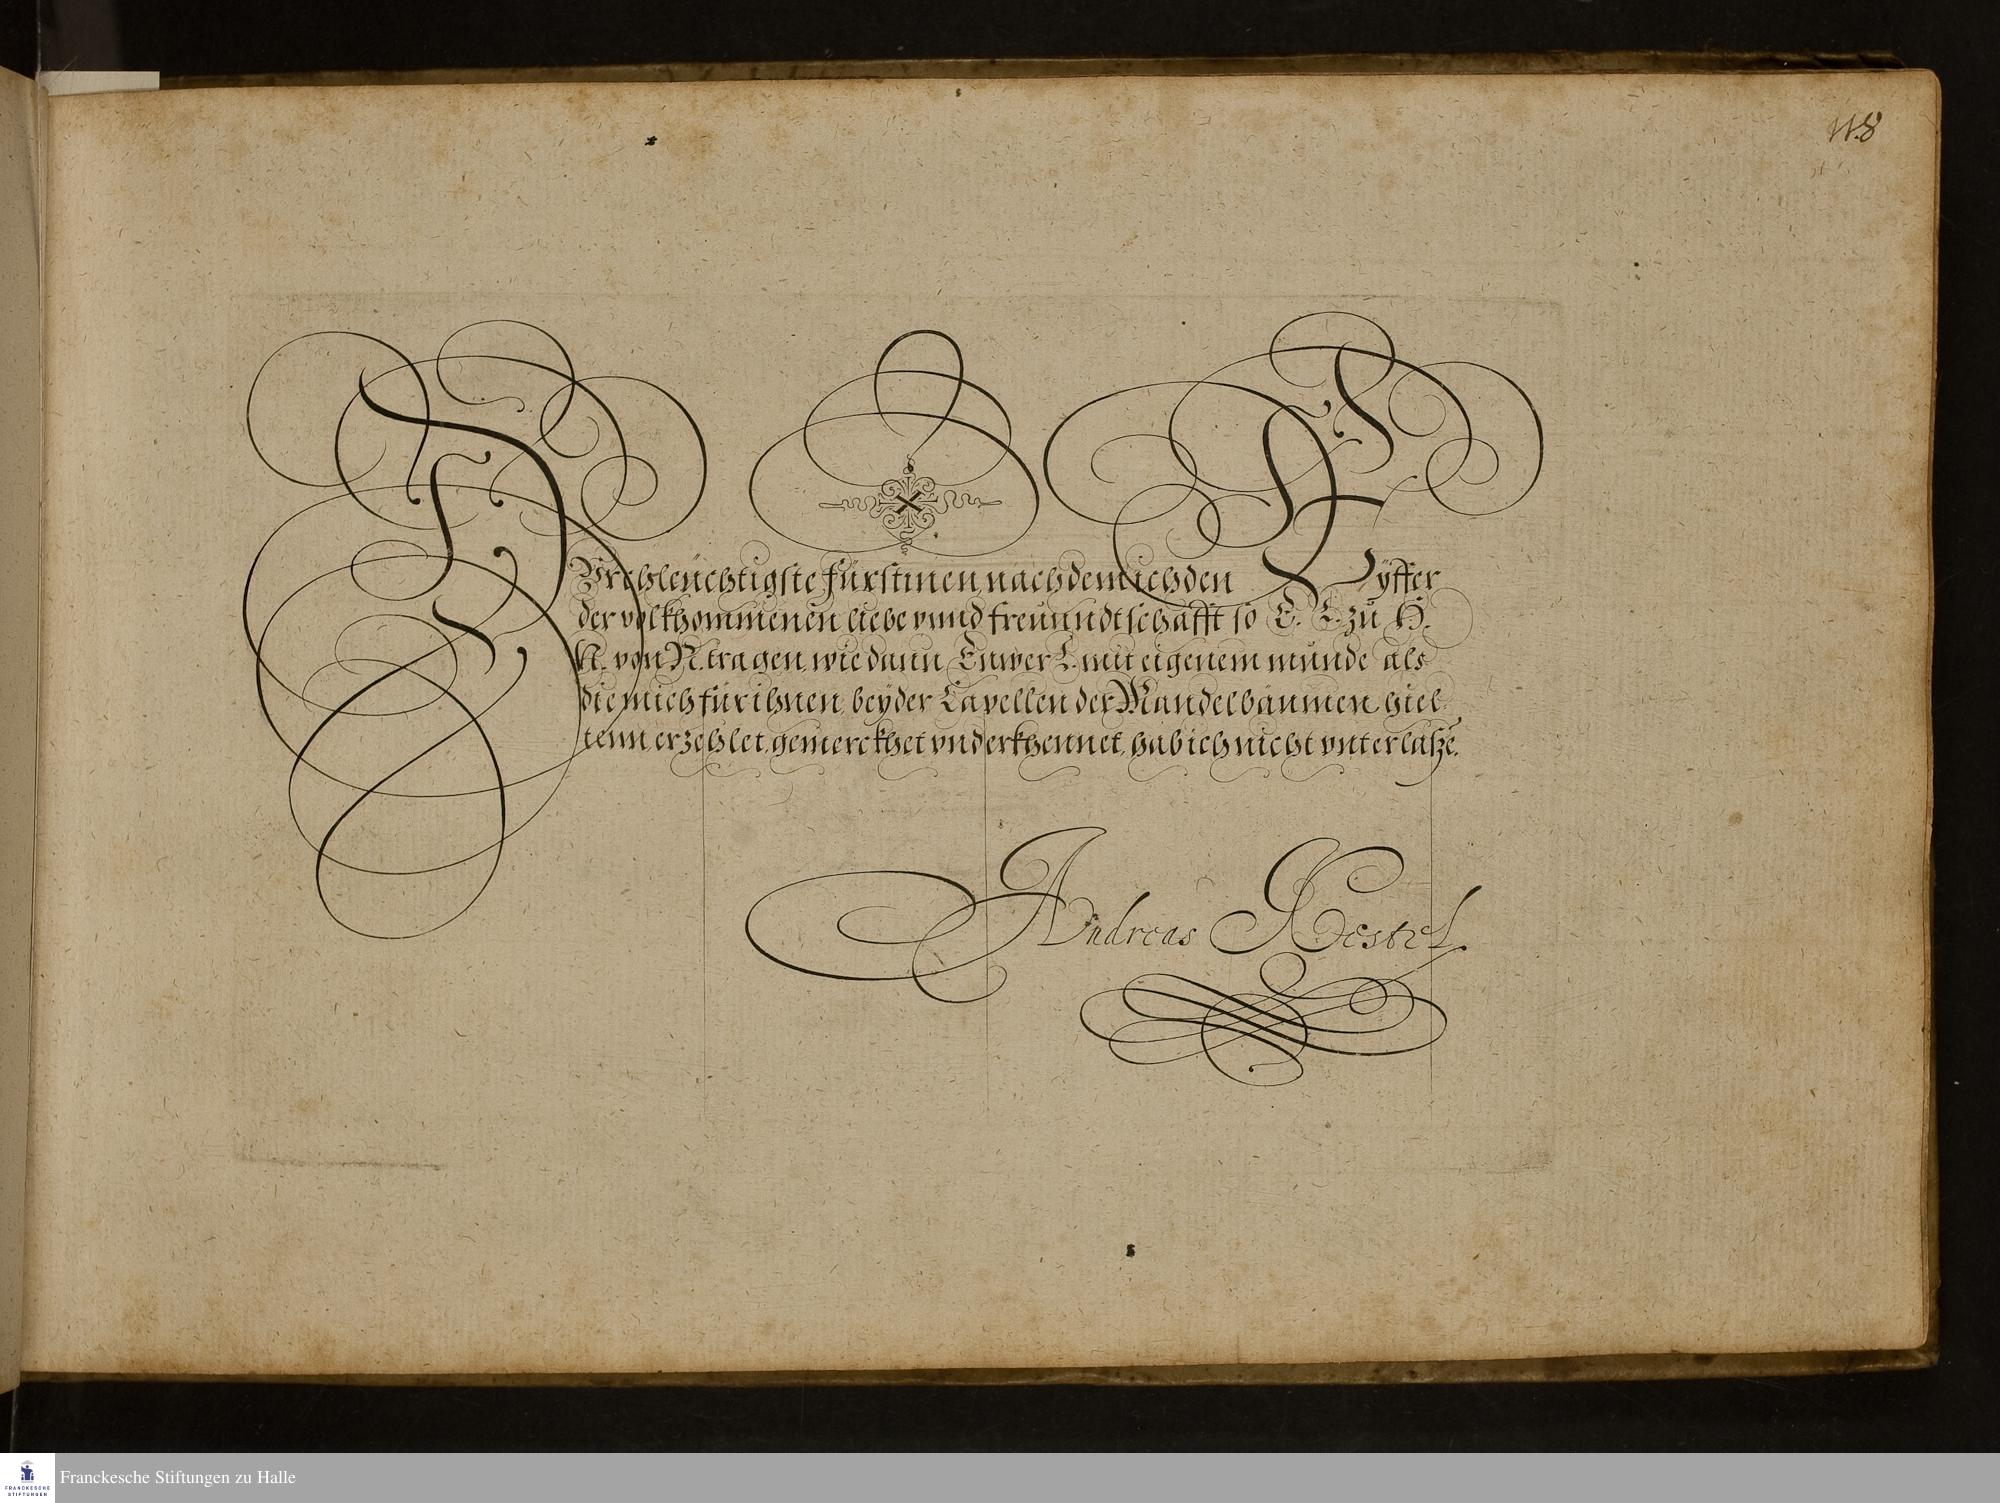 118
DVrchleüchtigste Fürstinen, nach dem ich den Eyffer
der volkhommenen liebe vnnd freunndtschafft so E. L. zü H.
N. von N. tragen, wie dann Eüwer L. mit eigenem münde als
die mich für ihnen, beÿ der Capellen der Mandelbäumen hiel-
tenn, erzehlet, gemerckhet vnd erkhennet, hab ich nicht vnterlaßē.
Andreas Nestel.
Franckesche Stiftungen zu Halle
FRANCKESCHE
STIFTUNGEN